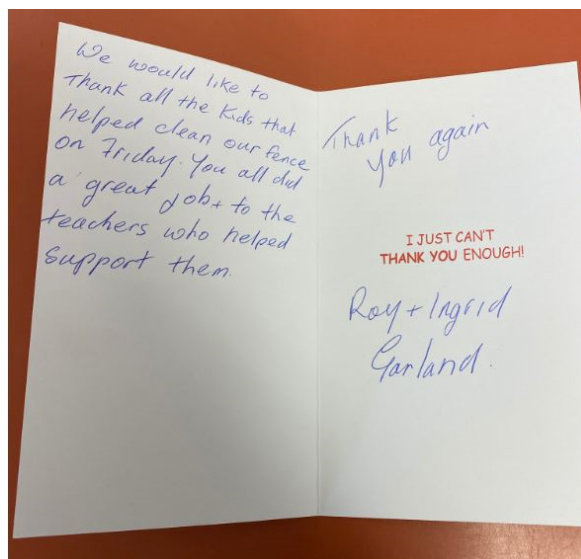 We would like to
Thank all the Kids that
helped clean our fence
on Friday. You all did
a great job + to the
teachers who helped
Support them.
Thank
you again
I JUST CAN'T
THANK YOU ENOUGH!
Roy + Ingrid
Garland.